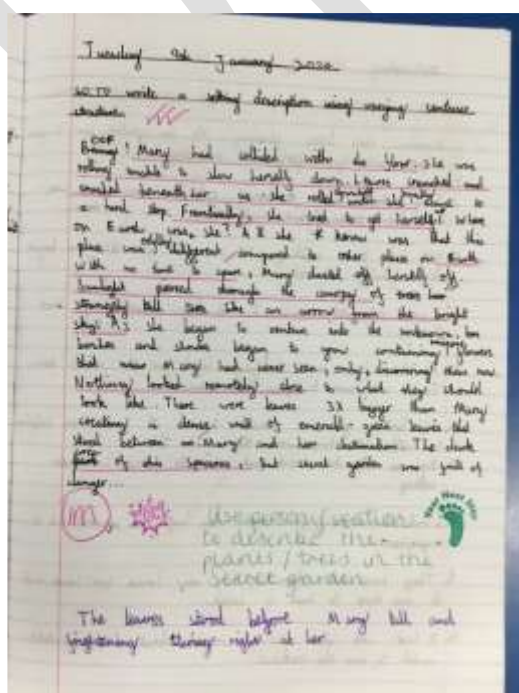 Tuesday 9th January 2024
WO: TO write a setting description using varying sentence
structure.
OOF
! Mary had collided with the floor. She was
rolling, unable to slow herself down. Leaves crunched and
beneath her as she rolled until she to
a hard stop. Frantically, she to get herself. Where
on Earth was she? All she knew was that the
place was different compared to other places on Earth.
With no time to spare, Mary dusted off herself off.
Sunlight peered through the canopy of trees
tall trees like an arrow from the bright
sky. As she began to venture into the
bushes and shrubs began to grow containing flowers
that Mary had never seen, only, than now
Nothing looked remotely close to what they should
look like. There were leaves 3x bigger than Mary
creating a dense wall of emerald-green leaves that
stood between Mary and her destination. The dark
of this, but secret garden was full of
danger...
m
Your Next Step
Use personification
to describe the
plants / trees in the
secret garden
The leaves stood before Mary tall and
frightening right at her.